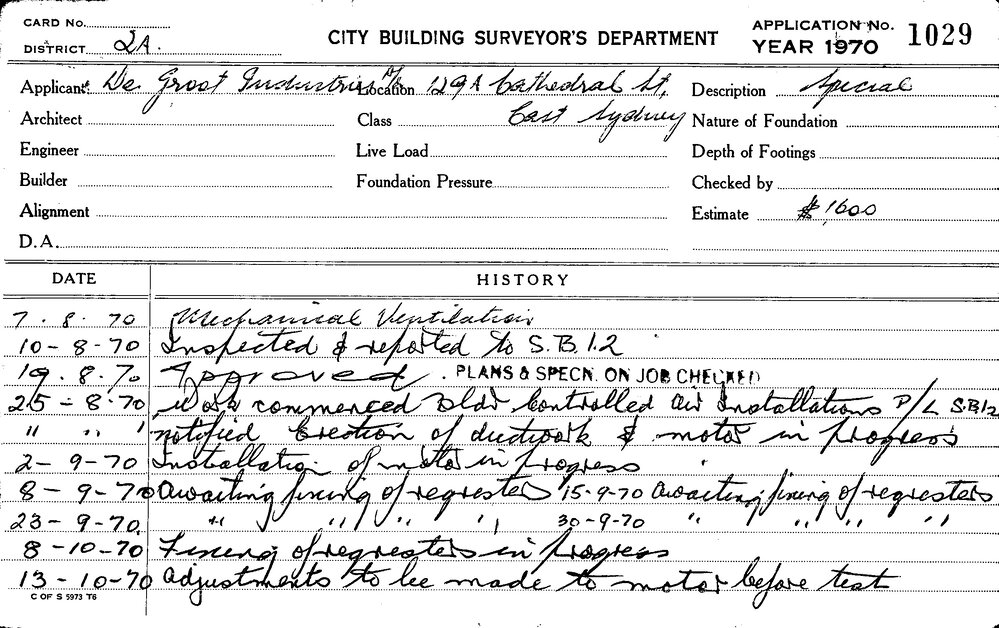 CARD No.
DISTRICT 2A.
CITY BUILDING SURVEYOR'S DEPARTMENT
APPLICATION No. 1029
YEAR 1970
Applicant De Groot Industries P/L Location 129A Cathedral St, Description Special
Architect Class East Sydney Nature of Foundation
Engineer Live Load Depth of Footings
Builder Foundation Pressure Checked by
Alignment Estimate $1600
D.A.
DATE HISTORY
7. 8. 70 Mechanical Ventilation
10-8-70 Inspected & reported to S.B.1.2
19.8.70 Approved. PLANS & SPECN. ON JOB CHECKED
25-8-70 Work commenced Bldr Controlled Air Installations P/L S.B.12
" " " notified Erection of ductwork & motor in progress
2-9-70 Installation of motor in progress
8-9-70 Awaiting fixing of regresters 15-9-70 Awaiting fixing of regresters
23-9-70 " " " " 30-9-70 " " " "
8-10-70 Fixing of regresters in progress
13-10-70 Adjustments to be made to motor before test
C OF S 5973 T6